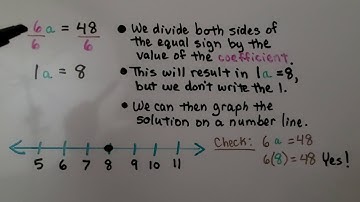 6a = 48
6 6
1a = 8
• We divide both sides of
the equal sign by the
value of the coefficient.
• This will result in 1a = 8,
but we don't write the 1.
• We can then graph the
solution on a number line.
5 6 7 8 9 10 11
Check: 6a = 48
6(8) = 48 Yes!